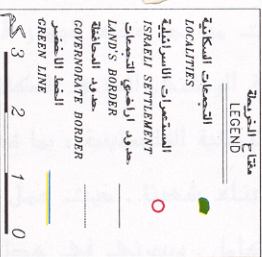 مفتاح الخريطة
LEGEND
التجمعات السكانية
LOCALITIES
المستعمرات الاسرائيلية
ISRAELI SETTLEMENT
حدود اراضي التجمعات
LAND'S BORDER
حدود المحافظة
GOVERNORATE BORDER
الخط الاخضر
GREEN LINE
كم 3 2 1 0